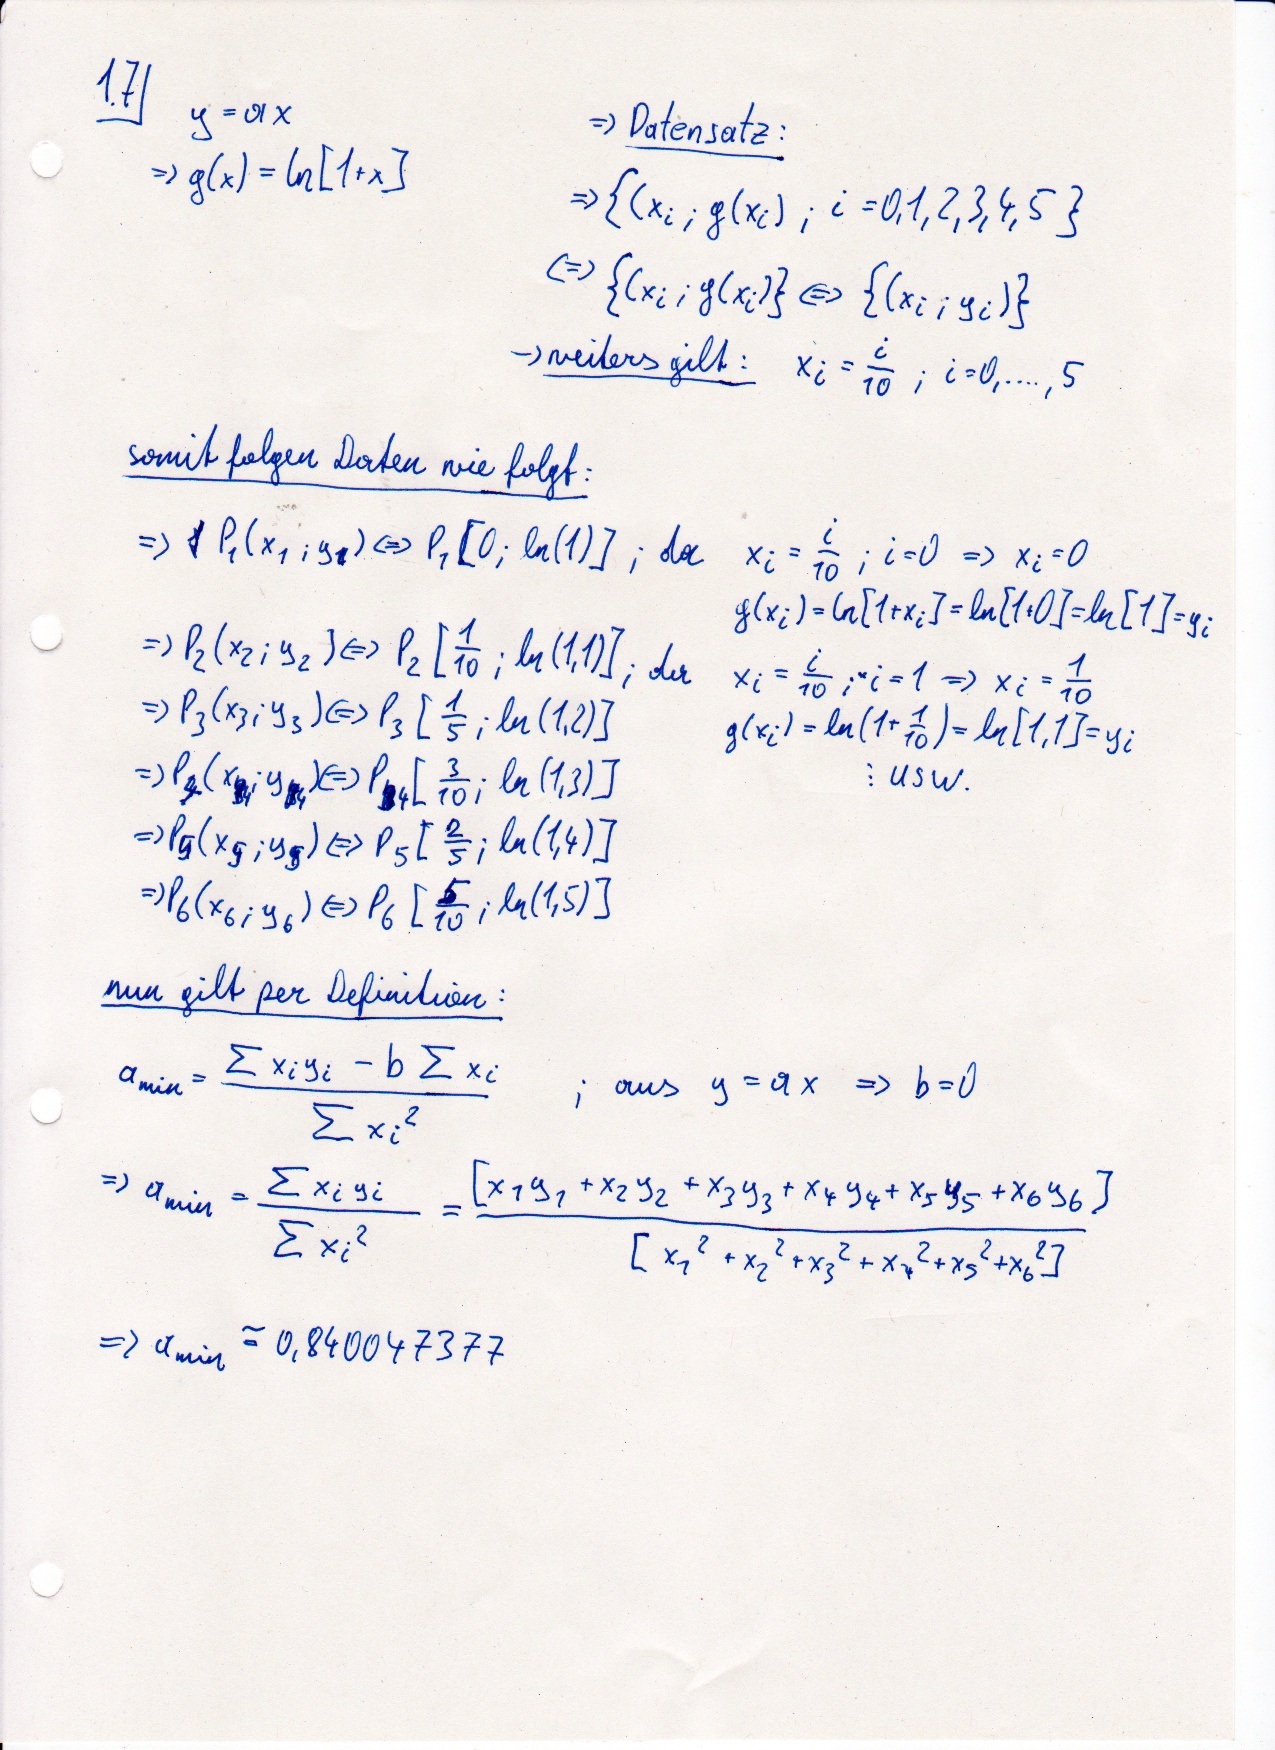 1.7
y = ax
=> g(x) = ln[1+x]
=> Datensatz:
=> {(xᵢ ; g(xᵢ) ; i = 0,1,2,3,4,5 }
<=> {(xᵢ ; g(xᵢ)} <=> {(xᵢ ; yᵢ)}
-> weiters gilt: xᵢ = i/10 ; i=0,....,5
somit folgen Daten wie folgt:
=> P₁(x₁ ; y₁) <=> P₁[0; ln(1)] ; da xᵢ = i/10 ; i=0 => xᵢ=0
g(xᵢ) = ln[1+xᵢ] = ln[1+0] = ln[1] = yᵢ
=> P₂(x₂ ; y₂) <=> P₂[1/10 ; ln(1,1)] ; da xᵢ = i/10 ; i=1 => xᵢ = 1/10
=> P₃(x₃ ; y₃) <=> P₃[1/5 ; ln(1,2)]
g(xᵢ) = ln(1+1/10) = ln[1,1] = yᵢ
=> P₄(x₄ ; y₄) <=> P₄[3/10 ; ln(1,3)]
⋮ usw.
=> P₅(x₅ ; y₅) <=> P₅[2/5 ; ln(1,4)]
=> P₆(x₆ ; y₆) <=> P₆[5/10 ; ln(1,5)]
nun gilt per Definition:
a_min = (∑ xᵢyᵢ - b ∑ xᵢ) / (∑ xᵢ²) ; aus y = ax => b=0
=> a_min = (∑ xᵢyᵢ) / (∑ xᵢ²) = [x₁y₁ + x₂y₂ + x₃y₃ + x₄y₄ + x₅y₅ + x₆y₆] / [x₁² + x₂² + x₃² + x₄² + x₅² + x₆²]
=> a_min ≅ 0,840047377